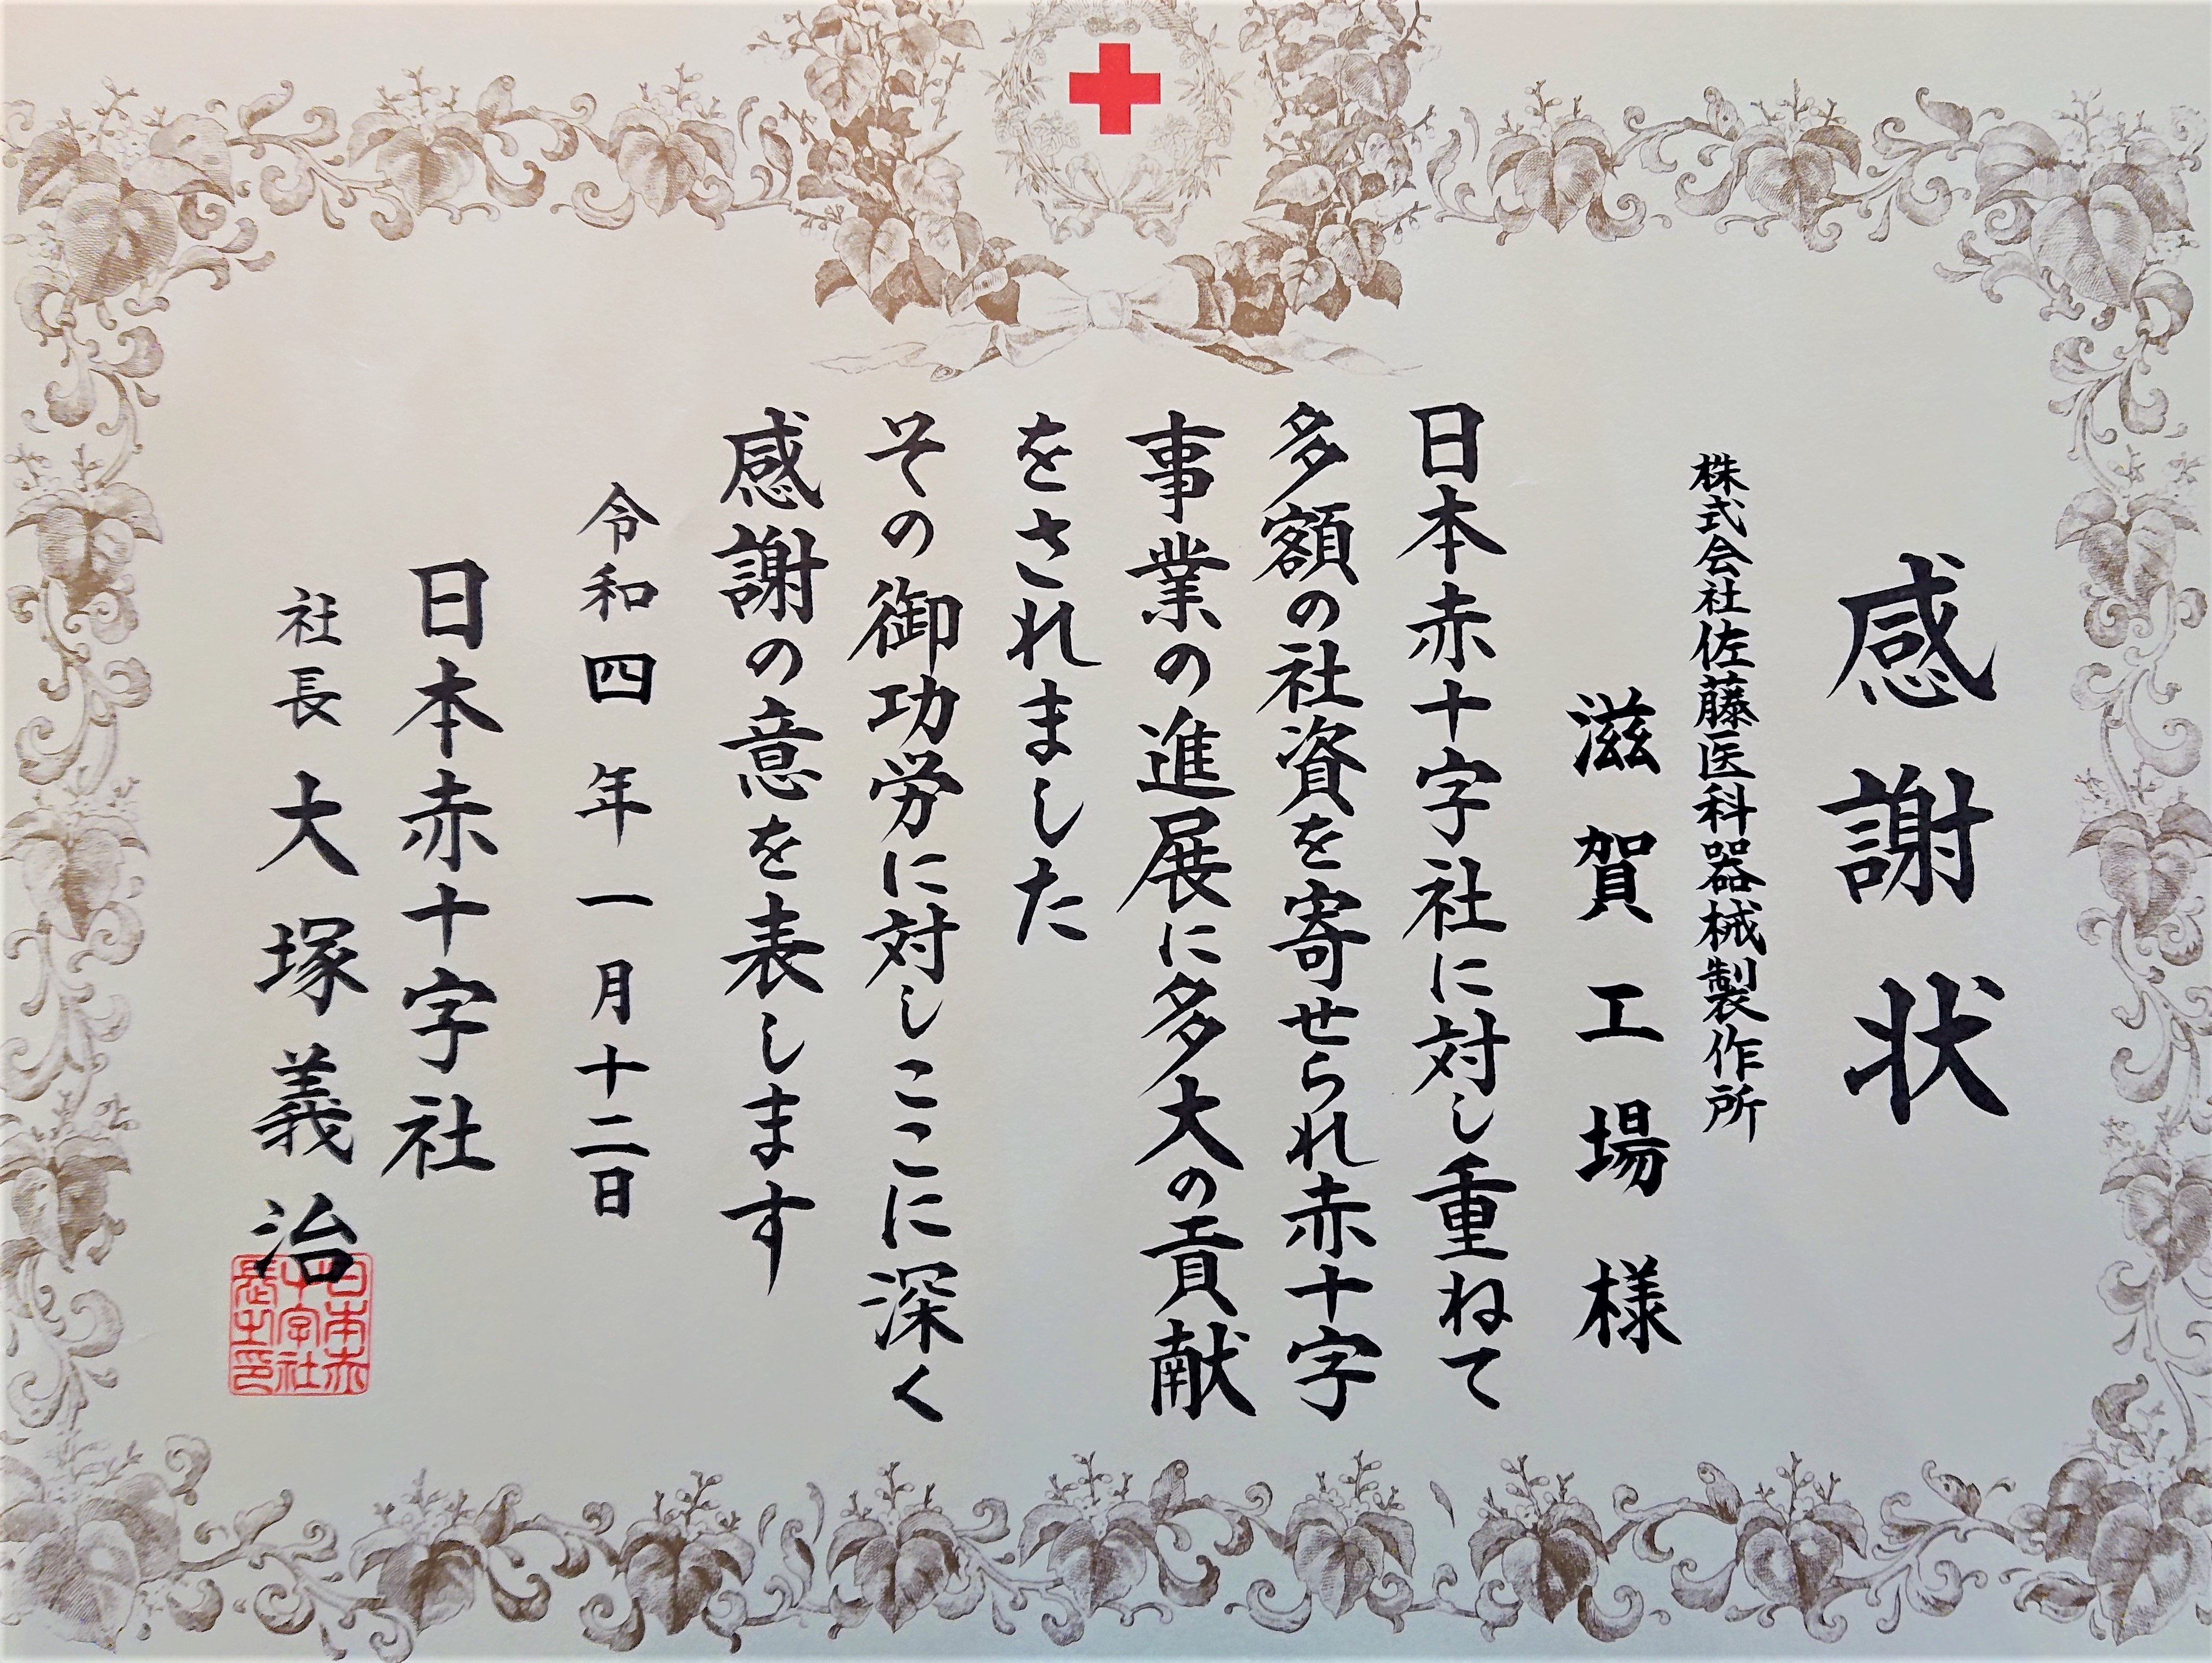 感謝状
株式会社佐藤医科器械製作所
滋賀工場様
日本赤十字社に対し重ねて
多額の社資を寄せられ赤十字
事業の進展に多大の貢献
をされました
その御功労に対しここに深く
感謝の意を表します
令和四年一月十二日
日本赤十字社
社長 大塚義治
日本赤
十字社
長之印